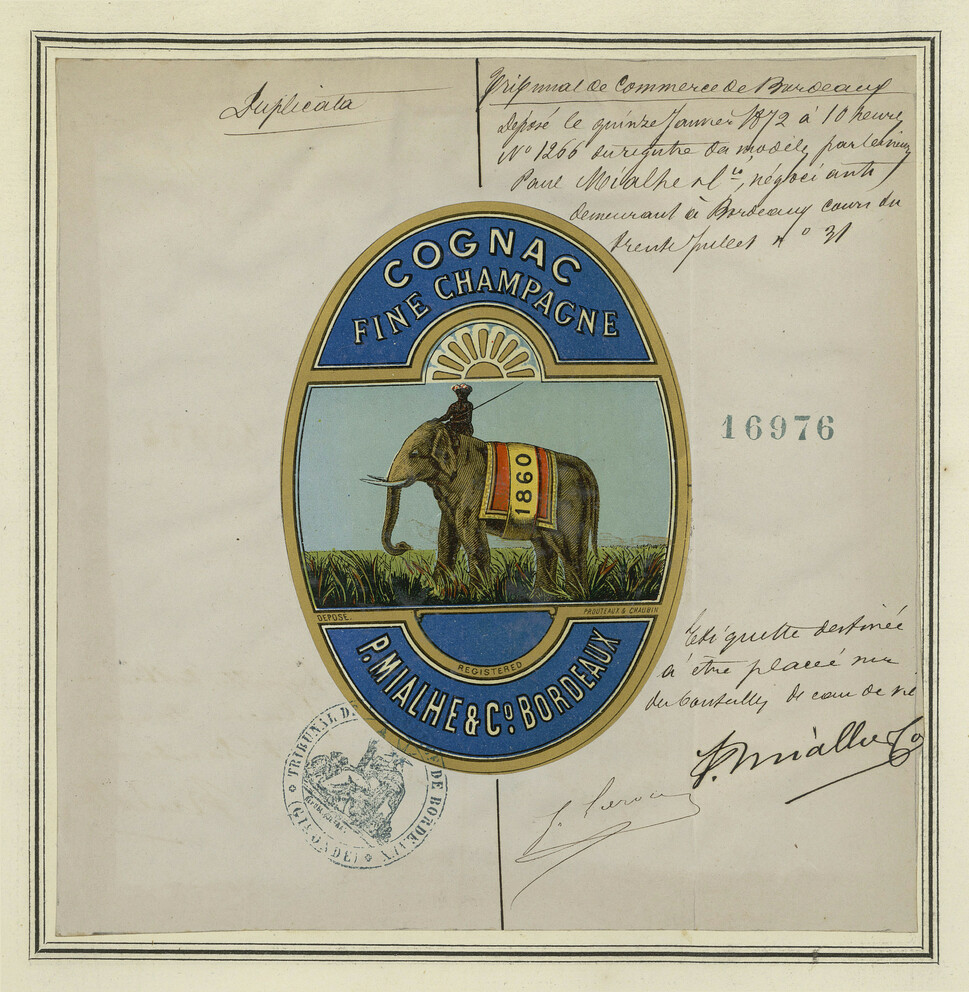 Duplicata
Tribunal de Commerce de Bordeaux
Déposé le quinze Janvier 1872 à 10 heures
No 1266 du registre des modèles par le sieur
Paul Mialhe & Cie, négociants,
demeurant à Bordeaux cours du
trente juillet no 31
COGNAC
FINE CHAMPAGNE
1860
16976
DEPOSÉ.
PROUTEAUX & CHAUBIN
REGISTERED
P. MIALHE & Co. BORDEAUX
Etiquette destinée
à être placée sur
des bouteilles de eau de vie
P. Mialhe & Co
TRIBUNAL DE BORDEAUX
(GIRONDE)